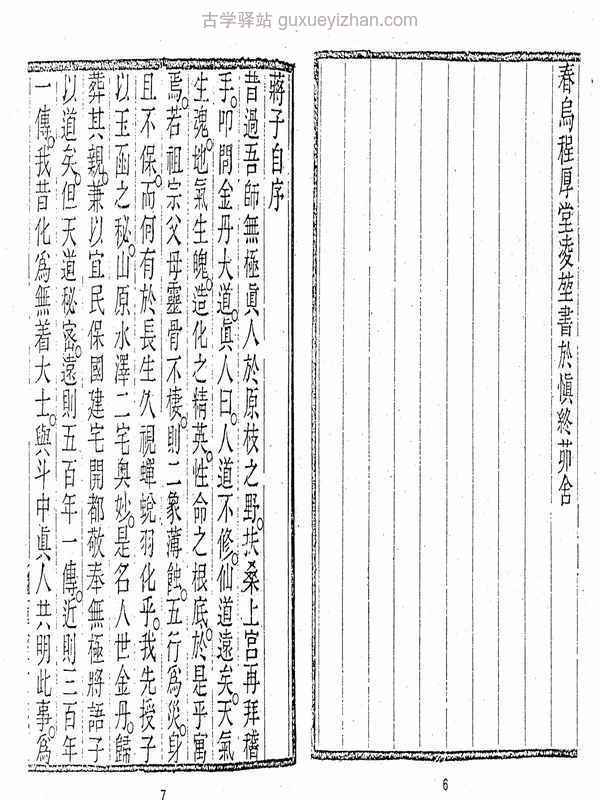 古学驿站 guxueyizhan.com
春烏程厚堂凌堃書於慎終茆舍
6
蔣子自序
昔過吾師無極眞人於原枝之野。扶桑上宮再拜稽
手。叩問金丹大道。眞人曰。人道不修。仙道遠矣。天氣
生魂。地氣生魄。造化之精英。性命之根底。於是乎寓
焉。若祖宗父母靈骨不棲。則二象薄蝕。五行爲災。身
且不保。而何有於長生久視蟬蛻羽化乎。我先授子
以玉函之秘。山原水澤二宅奥妙。是名人世金丹。歸
葬其親。兼以宜民保國建宅開都敬奉無極將語子
以道矣。但天道秘密。遠則五百年一傳。近則三百年
一傳。我昔化爲無着大士。與斗中眞人共明此事。爲
7